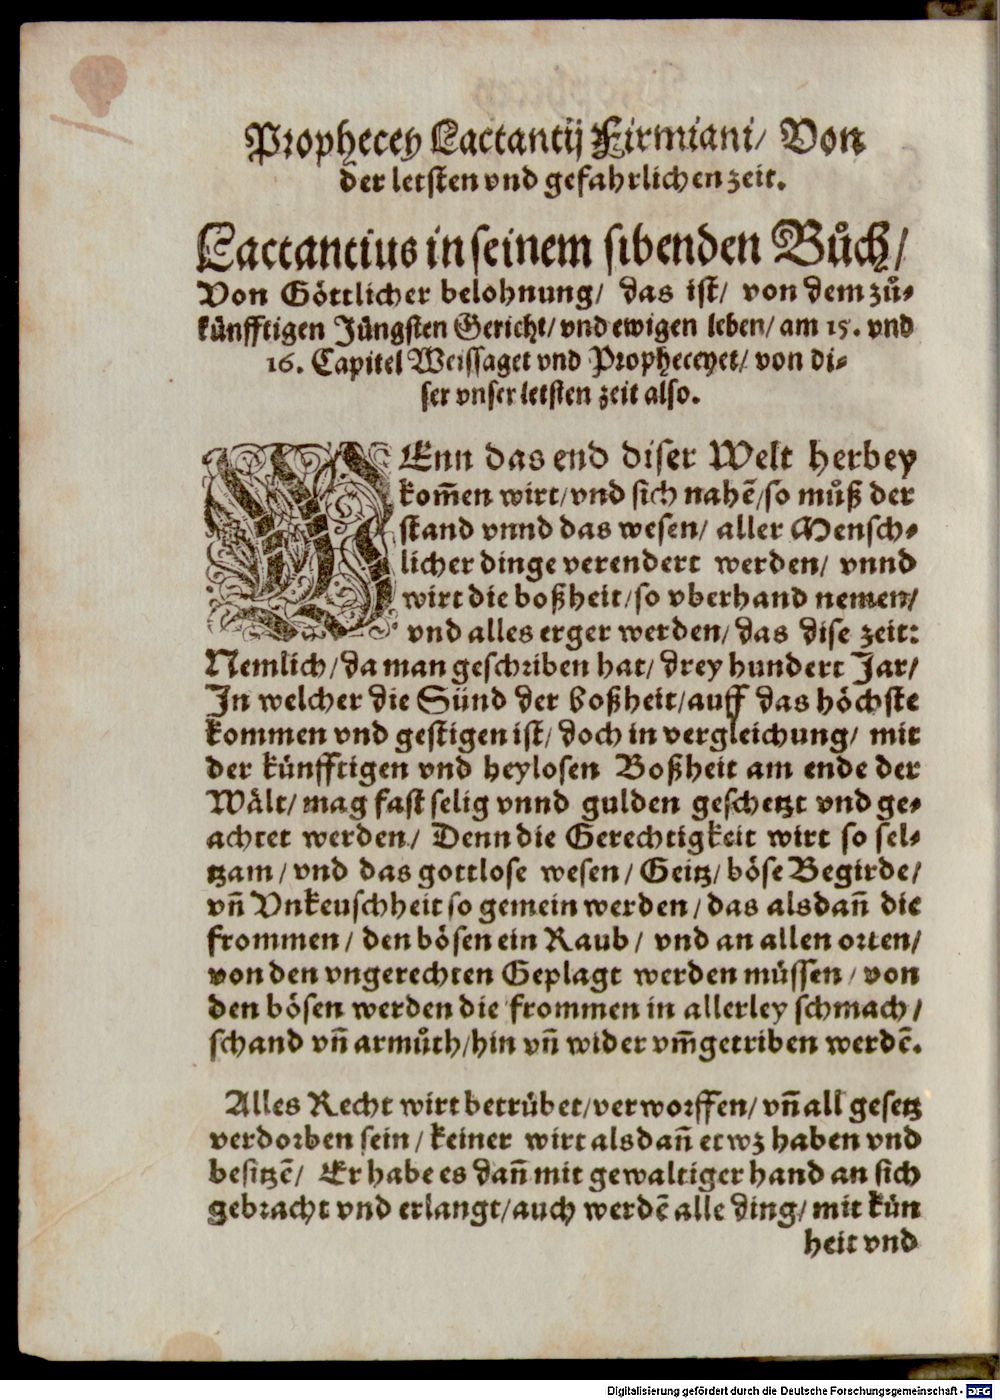 Prophecey Lactantij Firmiani/ Von
der letsten vnd gefahrlichen zeit.
Lactantius in seinem sibenden Bůch/
Von Göttlicher belohnung/ das ist/ von dem zů-
künfftigen Jüngsten Gericht/ vnd ewigen leben/ am 15. vnd
16. Capitel Weissaget vnd Propheceyet/ von di-
ser vnser letsten zeit also.
WEnn das end diser Welt herbey
kom̃en wirt/ vnd sich nahẽ/ so můß der
stand vnnd das wesen/ aller Mensch-
licher dinge verendert werden/ vnnd
wirt die boßheit/ so vberhand nemen/
vnd alles erger werden/ das dise zeit:
Nemlich/ da man geschriben hat/ drey hundert Jar/
In welcher die Sünd der boßheit/ auff das höchste
kommen vnd gestigen ist/ doch in vergleichung/ mit
der künfftigen vnd heylosen Boßheit am ende der
Wält/ mag fast selig vnnd gulden geschetzt vnd ge-
achtet werden/ Denn die Gerechtigkeit wirt so sel-
tzam/ vnd das gottlose wesen/ Geitz/ böse Begirde/
vñ Vnkeuschheit so gemein werden/ das alsdañ die
frommen/ den bösen ein Raub/ vnd an allen orten/
von den vngerechten Geplagt werden müssen/ von
den bösen werden die frommen in allerley schmach/
schand vñ armůth/ hin vñ wider vm̃getriben werdẽ.
Alles Recht wirt betrübet/ verworffen/ vñ all gesetz
verdorben sein/ keiner wirt alsdañ etwz haben vnd
besitzẽ/ Er habe es dañ mit gewaltiger hand an sich
gebracht vnd erlangt/ auch werdẽ alle ding/ mit kün
heit vnd
Digitalisierung gefördert durch die Deutsche Forschungsgemeinschaft - DFG